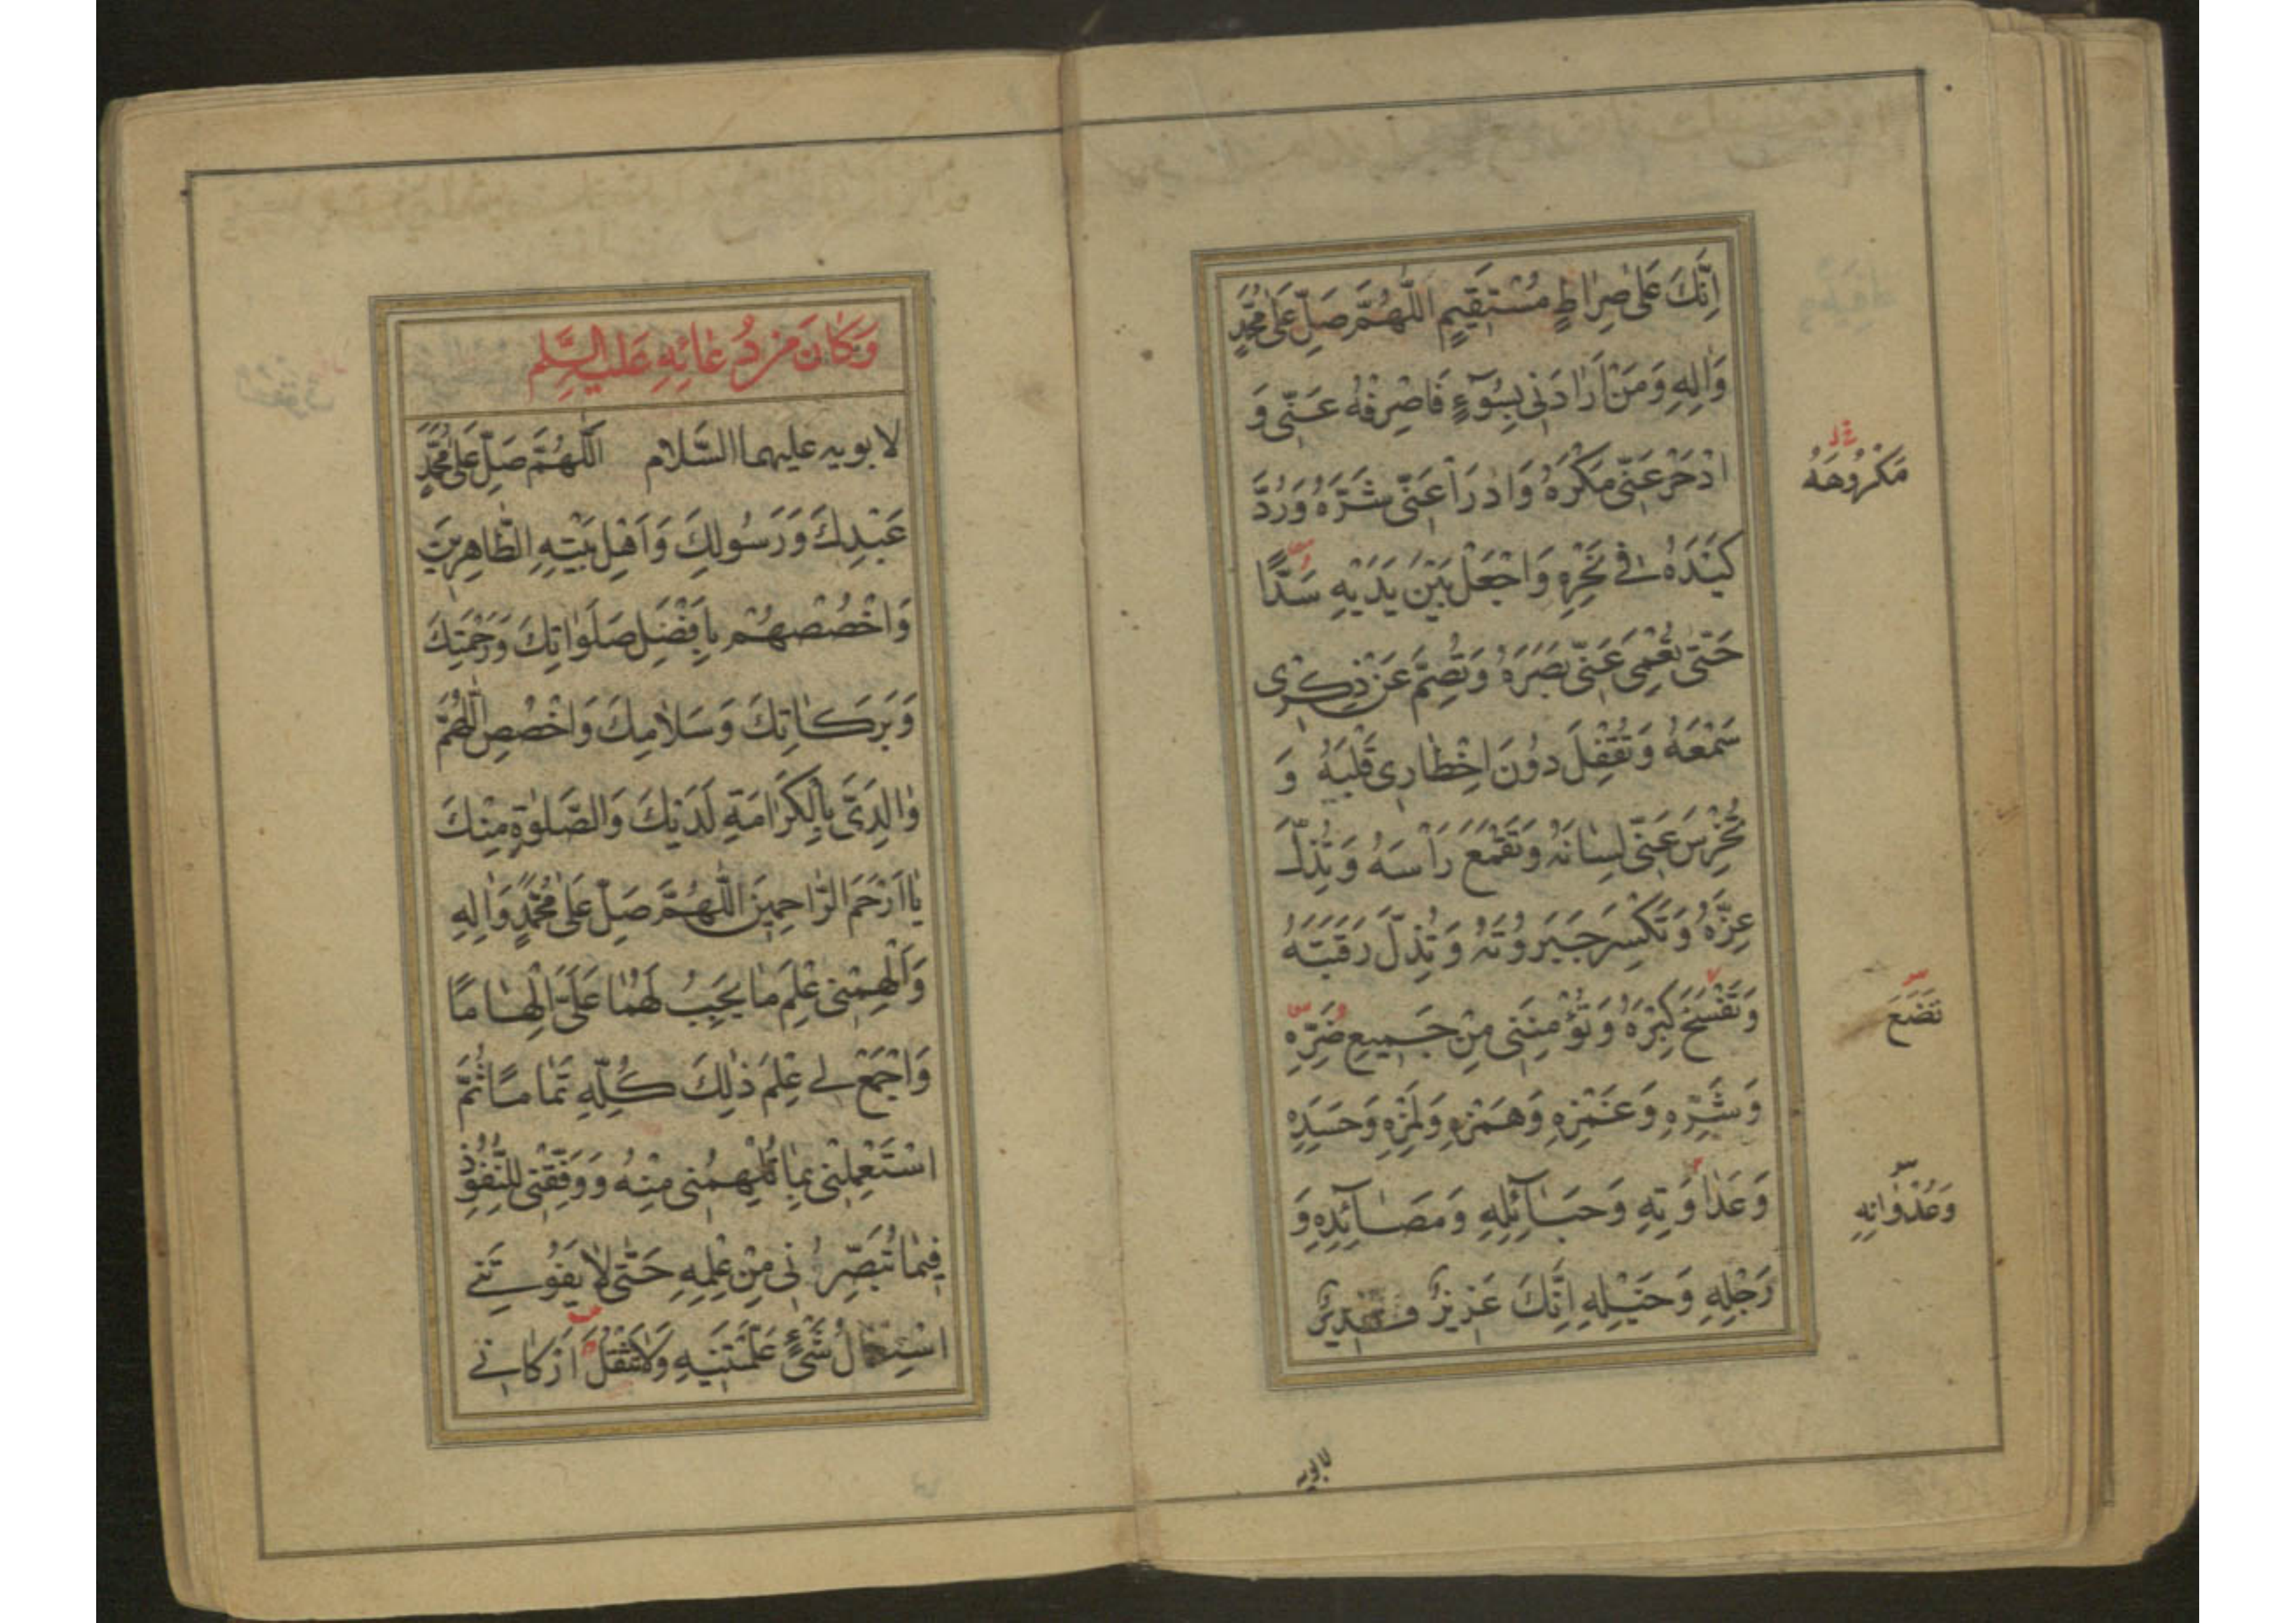 اِنَّكَ عَلىٰ صِرٰاطٍ مُسْتَقيمٍ اَللّٰهُمَّ صَلِّ عَلىٰ مُحَمَّدٍ
وَاٰلِهِ وَمَنْ اَرٰادَنى بِسُوٓءٍ فَاصْرِفْهُ عَنّى وَ
ادْحَرْ عَنّى مَكْرَهُ وَادْرَأْ عَنّى شَرَّهُ وَرُدَّ
مَكْرُوهَهُ
كَيْدَهُ فى نَحْرِهِ وَاجْعَلْ بَيْنَ يَدَيْهِ سَدًّا
حَتّىٰ تُعْمِىَ عَنّى بَصَرَهُ وَتُصِمَّ عَنْ ذِكْرى
سَمْعَهُ وَتُقْفِلَ دُونَ اِخْطٰارى قَلْبَهُ وَ
تُخْرِسَ عَنّى لِسٰانَهُ وَتَقْمَعَ رَأْسَهُ وَتُذِلَّ
عِزَّهُ وَتَكْسِرَ جَبَرُوتَهُ وَتُذِلَّ رَقَبَتَهُ
وَتَفْسَخَ كِبْرَهُ وَتُؤْمِنَنى مِنْ جَميعِ ضَرِّهِ
تَضَعَ
وَشَرِّهِ وَغَمْزِهِ وَهَمْزِهِ وَلَمْزِهِ وَحَسَدِهِ
وَعَدٰاوَتِهِ وَحَبٰآئِلِهِ وَمَصٰآئِدِهِ وَ
وَعُدْوٰانِهِ
رَجْلِهِ وَخَيْلِهِ اِنَّكَ عَزيزٌ قَديرٌ
لابويه
وَكٰانَ مِنْ دُعٰائِهِ عَلَيْهِ السَّلٰم
لابويه عليهما السَّلام اَللّٰهُمَّ صَلِّ عَلىٰ مُحَمَّدٍ
عَبْدِكَ وَرَسُولِكَ وَاَهْلِ بَيْتِهِ الطّٰاهِرينَ
وَاخْصُصْهُمْ بِاَفْضَلِ صَلَوٰاتِكَ وَرَحْمَتِكَ
وَبَرَكٰاتِكَ وَسَلٰامِكَ وَاخْصُصِ اللّٰهُمَّ
وٰالِدَىَّ بِالْكَرٰامَةِ لَدَيْكَ وَالصَّلوٰةِ مِنْكَ
يٰا اَرْحَمَ الرّٰاحِمينَ اَللّٰهُمَّ صَلِّ عَلىٰ مُحَمَّدٍ وَاٰلِهِ
وَاَلْهِمْنى عِلْمَ مٰا يَجِبُ لَهُمٰا عَلَىَّ اِلْهٰامًا
وَاجْمَعْ لى عِلْمَ ذٰلِكَ كُلِّهِ تَمٰامًا ثُمَّ
اسْتَعْمِلْنى بِمٰا تُلْهِمُنى مِنْهُ وَوَفِّقْنى لِلنُّفُوذِ
فيمٰا تُبَصِّرُنى مِنْ عِلْمِهِ حَتّىٰ لٰا يَفُوتَنى
اسْتِعْمٰالُ شَىْءٍ عَلَّمْتَنيهِ وَلٰا تَثْقُلَ اَرْكٰانى